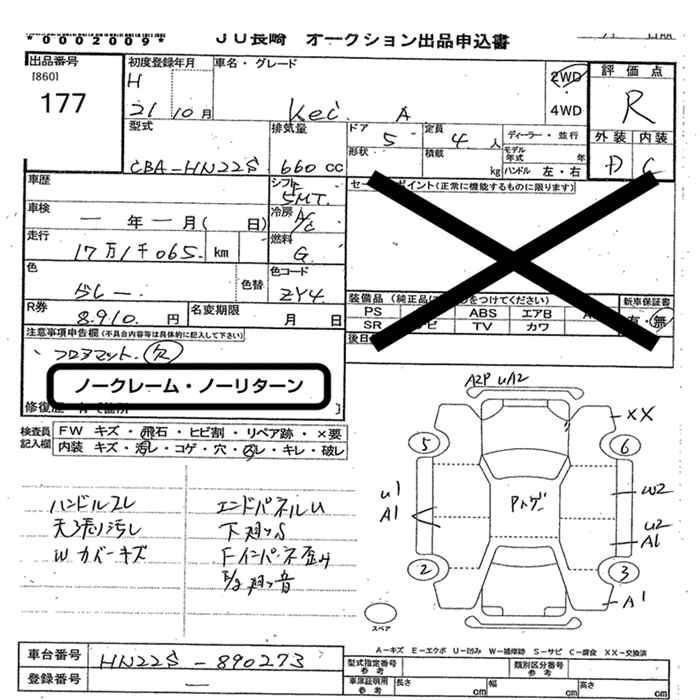 *0002009*
JU長崎 オークション出品申込書
出品番号
[860]
177
初度登録年月
H
21 10 月
車名・グレード
Kei A
2WD
4WD
評価点
R
外装 内装
D C
型式
CBA-HN22S
排気量
660 CC
ドア
5
定員
4 人
形状
積載
kg
ディーラー・並行
モデル年式 年
ハンドル 左・右
車歴
シフト
5MT
セー ポイント(正常に機能するものに限ります)
車検
一 年 一 月( 日)
冷房
A/C
走行
17万1千065 km
燃料
G
色
グレー
色替
色コード
ZY4
装備品 (純正品に をつけてください)
新車保証書
PS ABS エアB
有・無
SR TV カワ
R券
8.910 円
名変期限
月 日
後日
注意事項申告欄(不具合内容等は具体的に記入して下さい)
フロアマット 欠
ノークレーム・ノーリターン
検査員記入欄
FW キズ・飛石・ヒビ割・リペア跡・×要
内装 キズ・汚レ・コゲ・穴・スレ・キレ・破レ
ハンドルスレ
天張り汚レ
Wカバーキズ
エンドパネルU
下廻りS
Fインパネ歪み
下廻り音
A2P U/A2
XX
5
6
U1
A1
Pトゲ
W2
U2
A1
2
3
A1
スペア
A-キズ E-エクボ U-凹み W-補修跡 S-サビ C-腐食 XX-交換済
車台番号
HN22S-890273
登録番号
—
型式指定番号
参考
類別区分番号
参考
車庫証明用
参考
長さ cm
幅 cm
高さ cm